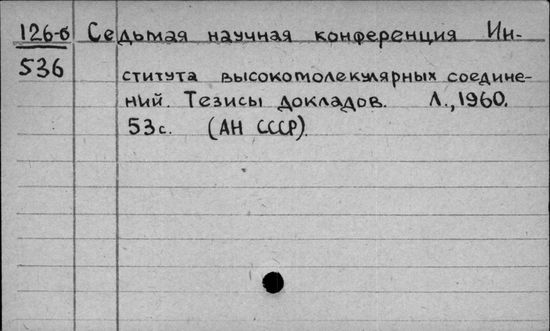 126-б Седьмая научная конференция Ин-
536
ститута высокомолекулярных соедине-
ний. Тезисы докладов. Л., 1960.
53с. (АН СССР).